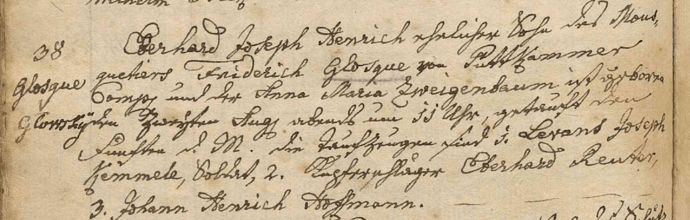 38
Eberhard Joseph Henrich ehelicher Sohn des Mous-
Glosque quetiers Friderich Glosque von Puttkammer
Glowsky Comp. und der Anna Maria Zweigenbaum ist geboren
den zweyten Aug. abends um 11 Uhr, getauft den
fünften d. M. die Taufzeugen sind 1. Levans Joseph
Kemmele, Soldat, 2. Kupferschläger Eberhard Reuter,
3. Johann Henrich Hoffmann.